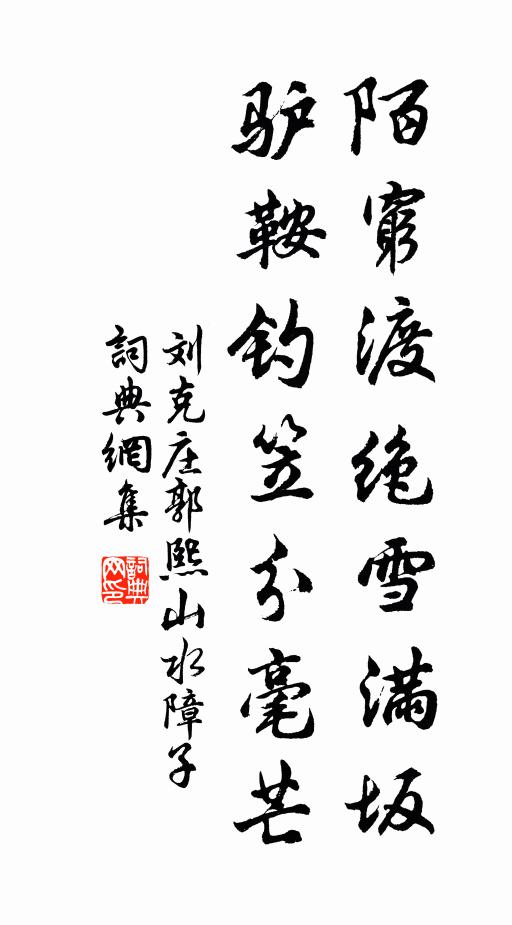 陌穷渡绝雪满坂
驴鞍钓笠分毫芒
刘克庄郭熙山水障子
词典網集
詞典网印